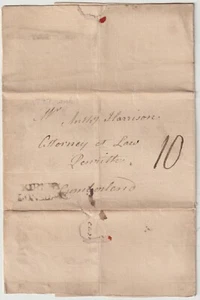 Mr Anthy Harrison
Attorney at Law
Penrith
10
Cumberland